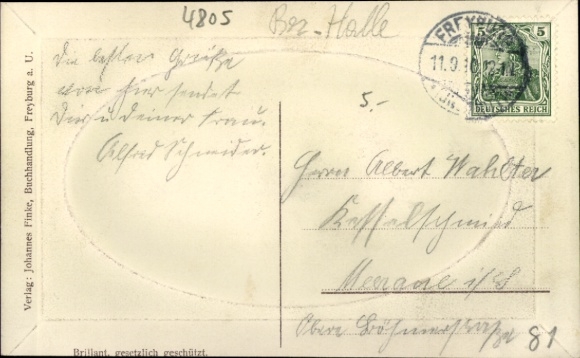 4805
Bez-Halle
Die besten Grüße
von hier sendet
Dir u deiner Frau.
Alfred Schneider.
5.-
FREYBURG
11.9.1
5 5
DEUTSCHES REICH
Herrn Albert
Meerane i/S
Obere
81
Verlag: Johannes Finke, Buchhandlung, Freyburg a. U.
Brillant, gesetzlich geschützt.